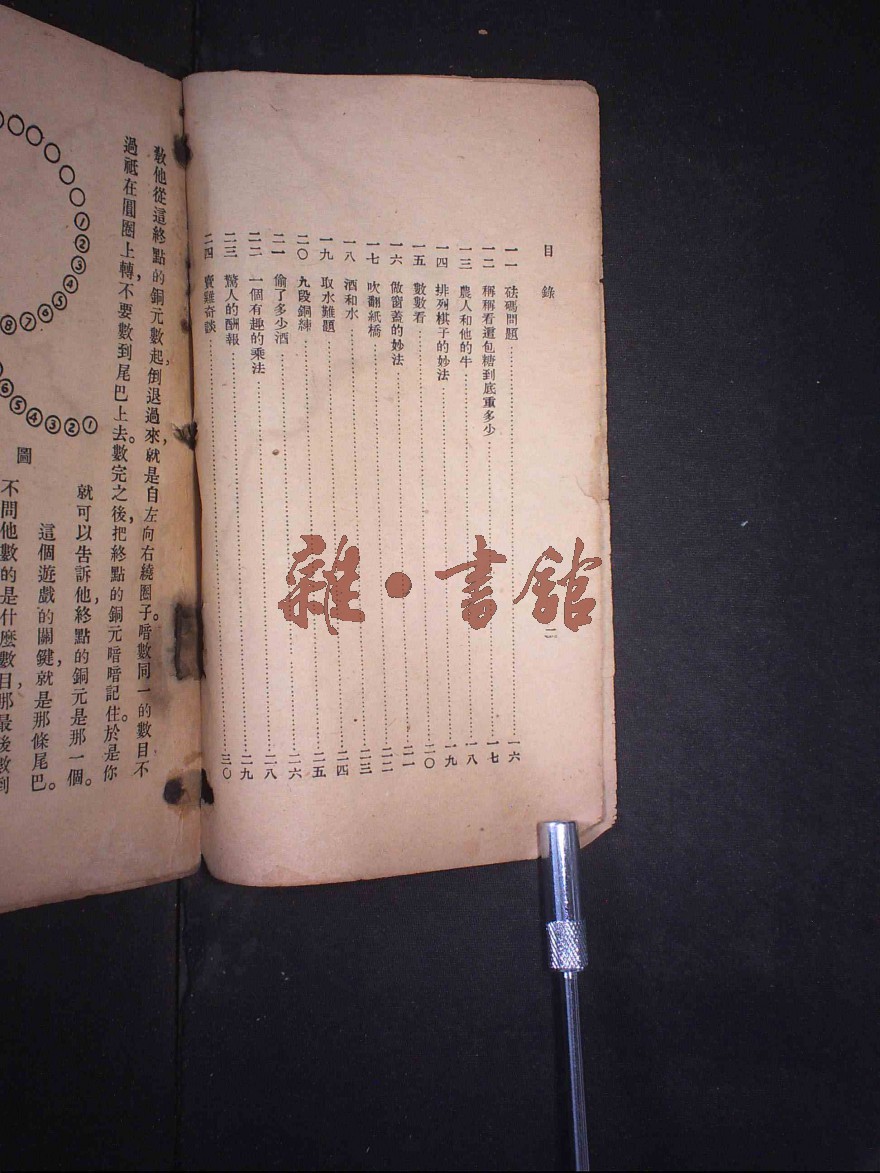 目錄
一一 砝碼問題 一六
一二 稱稱看這包糖到底重多少 一七
一三 農人和他的牛 一八
一四 排列棋子的妙法 一九
一五 數數看 二〇
一六 做窗蓋的妙法 二一
一七 吹翻紙橋 二二
一八 酒和水 二三
一九 取水難題 二四
二〇 九段銅練 二五
二一 偷了多少酒 二六
二二 一個有趣的乘法 二八
二三 驚人的酬報 二九
二四 賣雞奇談 三〇
二
雜·書館
教他從這終點的銅元數起,倒退過來,就是自左向右繞圈子。暗數同一的數目不
過祗在圓圈上轉,不要數到尾巴上去。數完之後,把終點的銅元暗暗記住。於是你
就可以告訴他,終點的銅元是那一個。
這個遊戲的關鍵,就是那條尾巴。
不問他數的是什麼數目,那最後數到
圖
①
②
③
④
⑤
⑥
⑦
⑧
①
②
③
④
⑤
⑥